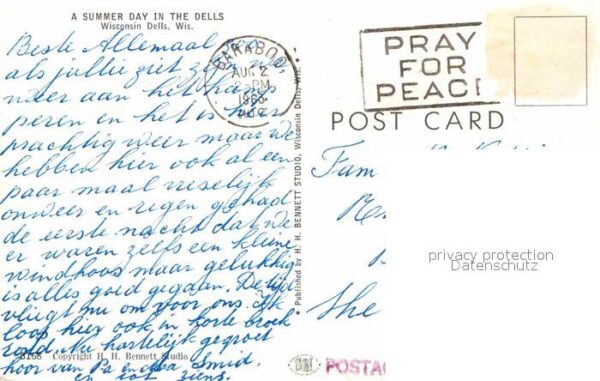 A SUMMER DAY IN THE DELLS
Wisconsin Dells, Wis.
Beste Allemaal
als jullie zien
weer aan het kam
peren en het is hier
prachtig weer maar we
hebben hier ook al een
paar maal vreselijk
onweer en regen gehad
de eerste nacht dat we
er waren zelfs een kleine
windhoos maar gelukkig
is alles goed gegaan. De tijd
vliegt nu om voor ons. Ik
loop hier ook in korte broek
rond. Nu hartelijk gegroet
hoor van Pa en Smid.
en tot ziens.
8168 Copyright H. H. Bennett Studio
Published by H. H. BENNETT STUDIO, Wisconsin Dells, Wis.
BARABOO,
AUG 2
PM
WIS.
PRAY
FOR
PEACE
POST CARD
Fam
The
privacy protection
Datenschutz
POSTAG